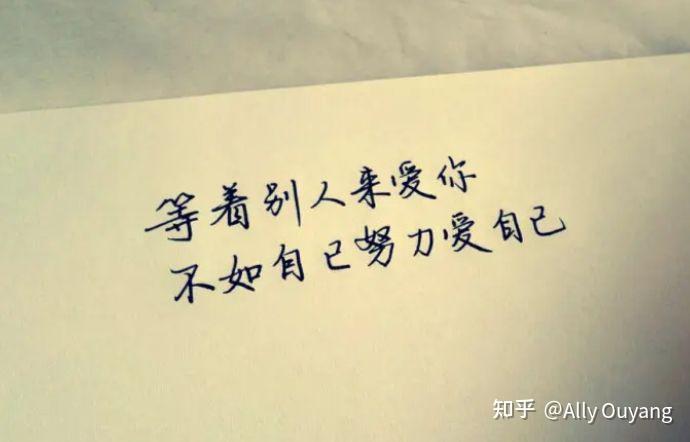 等着别人来爱你
不如自己努力爱自己
知乎 @Ally Ouyang